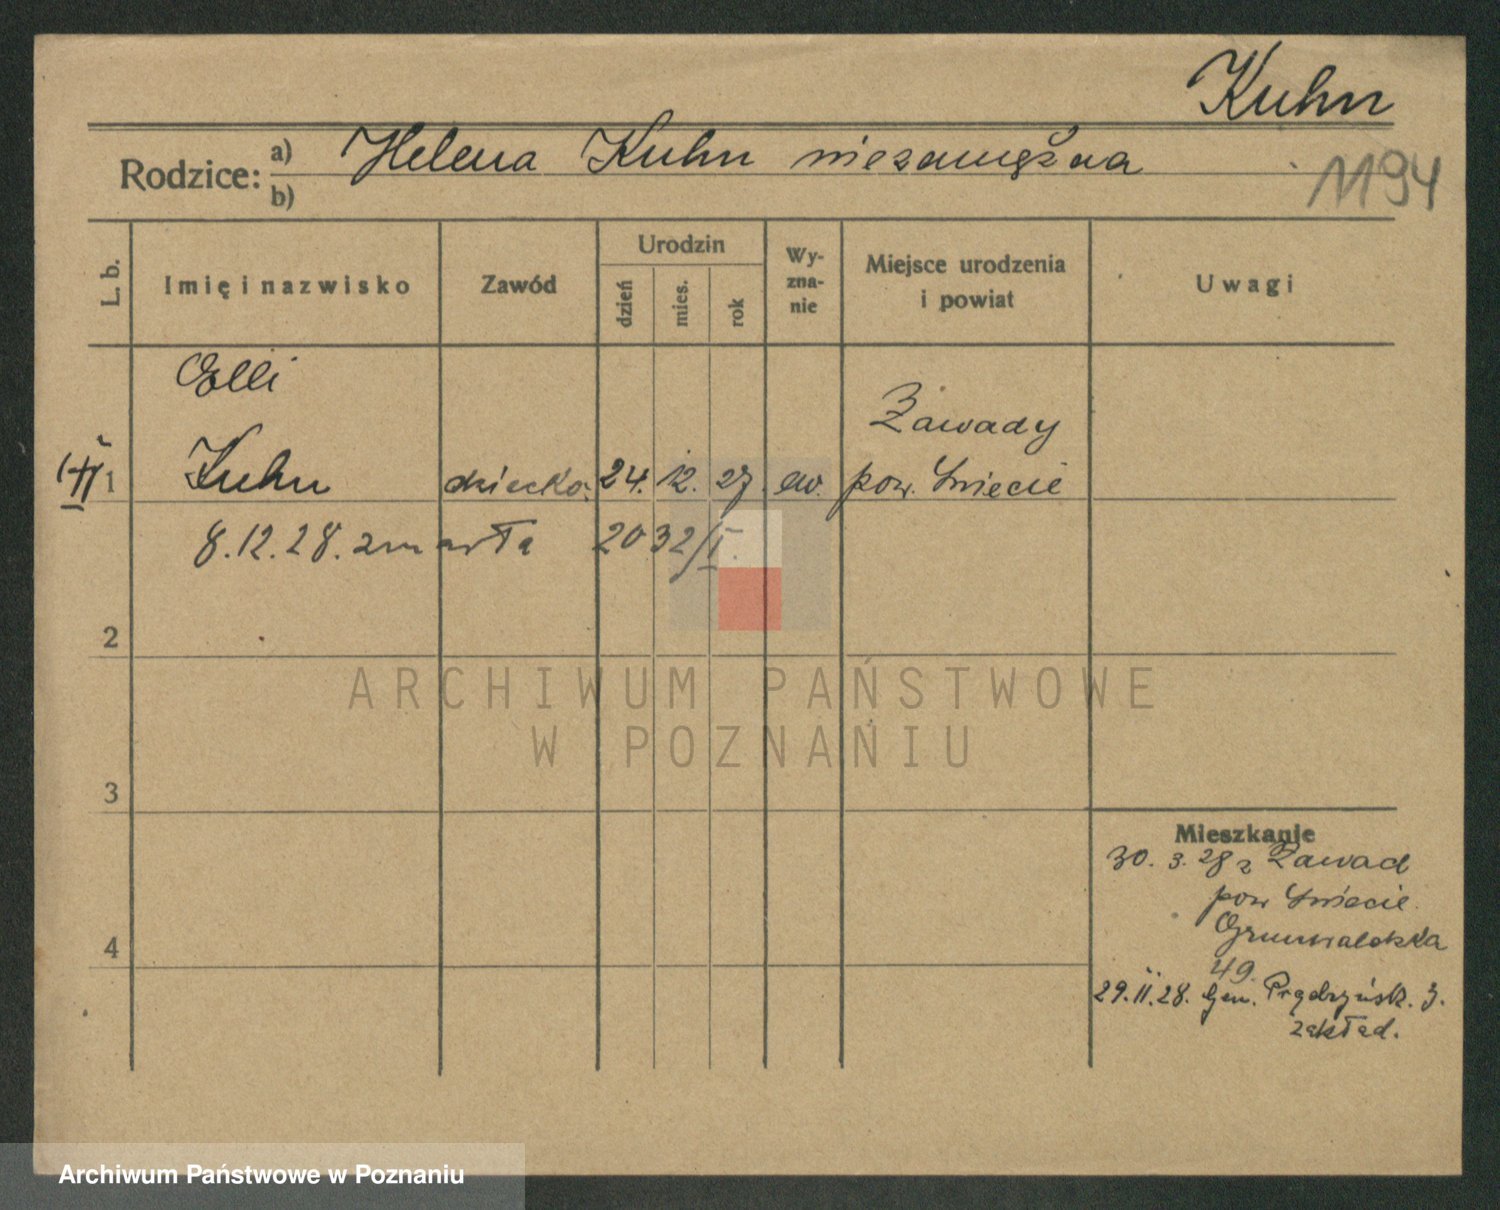 Kuhn
Rodzice: a) Helena Kuhn niezamężna
b)
1194
L. b.
Imię i nazwisko
Zawód
Urodzin
dzień
mies.
rok
Wy-
zna-
nie
Miejsce urodzenia
i powiat
Uwagi
Elli
Zawady
1 Kuhn dziecko 24. 12. 27. ew. pow. Świecie
8.12.28. zmarła 2032/I.
2
3
4
Mieszkanie
30. 3. 28 z Zawad
pow Świecie
Grunwaldzka
49.
29.11.28. Gen. Prądzyńsk. 3.
zakład.
ARCHIWUM PAŃSTWOWE
W POZNANIU
Archiwum Państwowe w Poznaniu